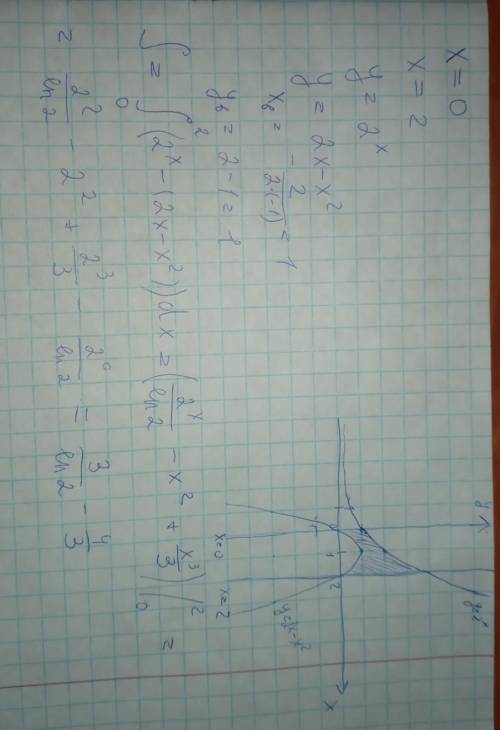 x = 0
x = 2
y = 2^x
y = 2x - x^2
x_в = - 2/(2·(-1)) = 1
y_в = 2 - 1 = 1
S = ∫_0^2 (2^x - (2x - x^2)) dx = (2^x/ln2 - x^2 + x^3/3) |_0^2 =
= 2^2/ln2 - 2^2 + 2^3/3 - 2^0/ln2 = 3/ln2 - 4/3
y
y=2^x
1
1
2
x
x=0
x=2
y=2x-x^2